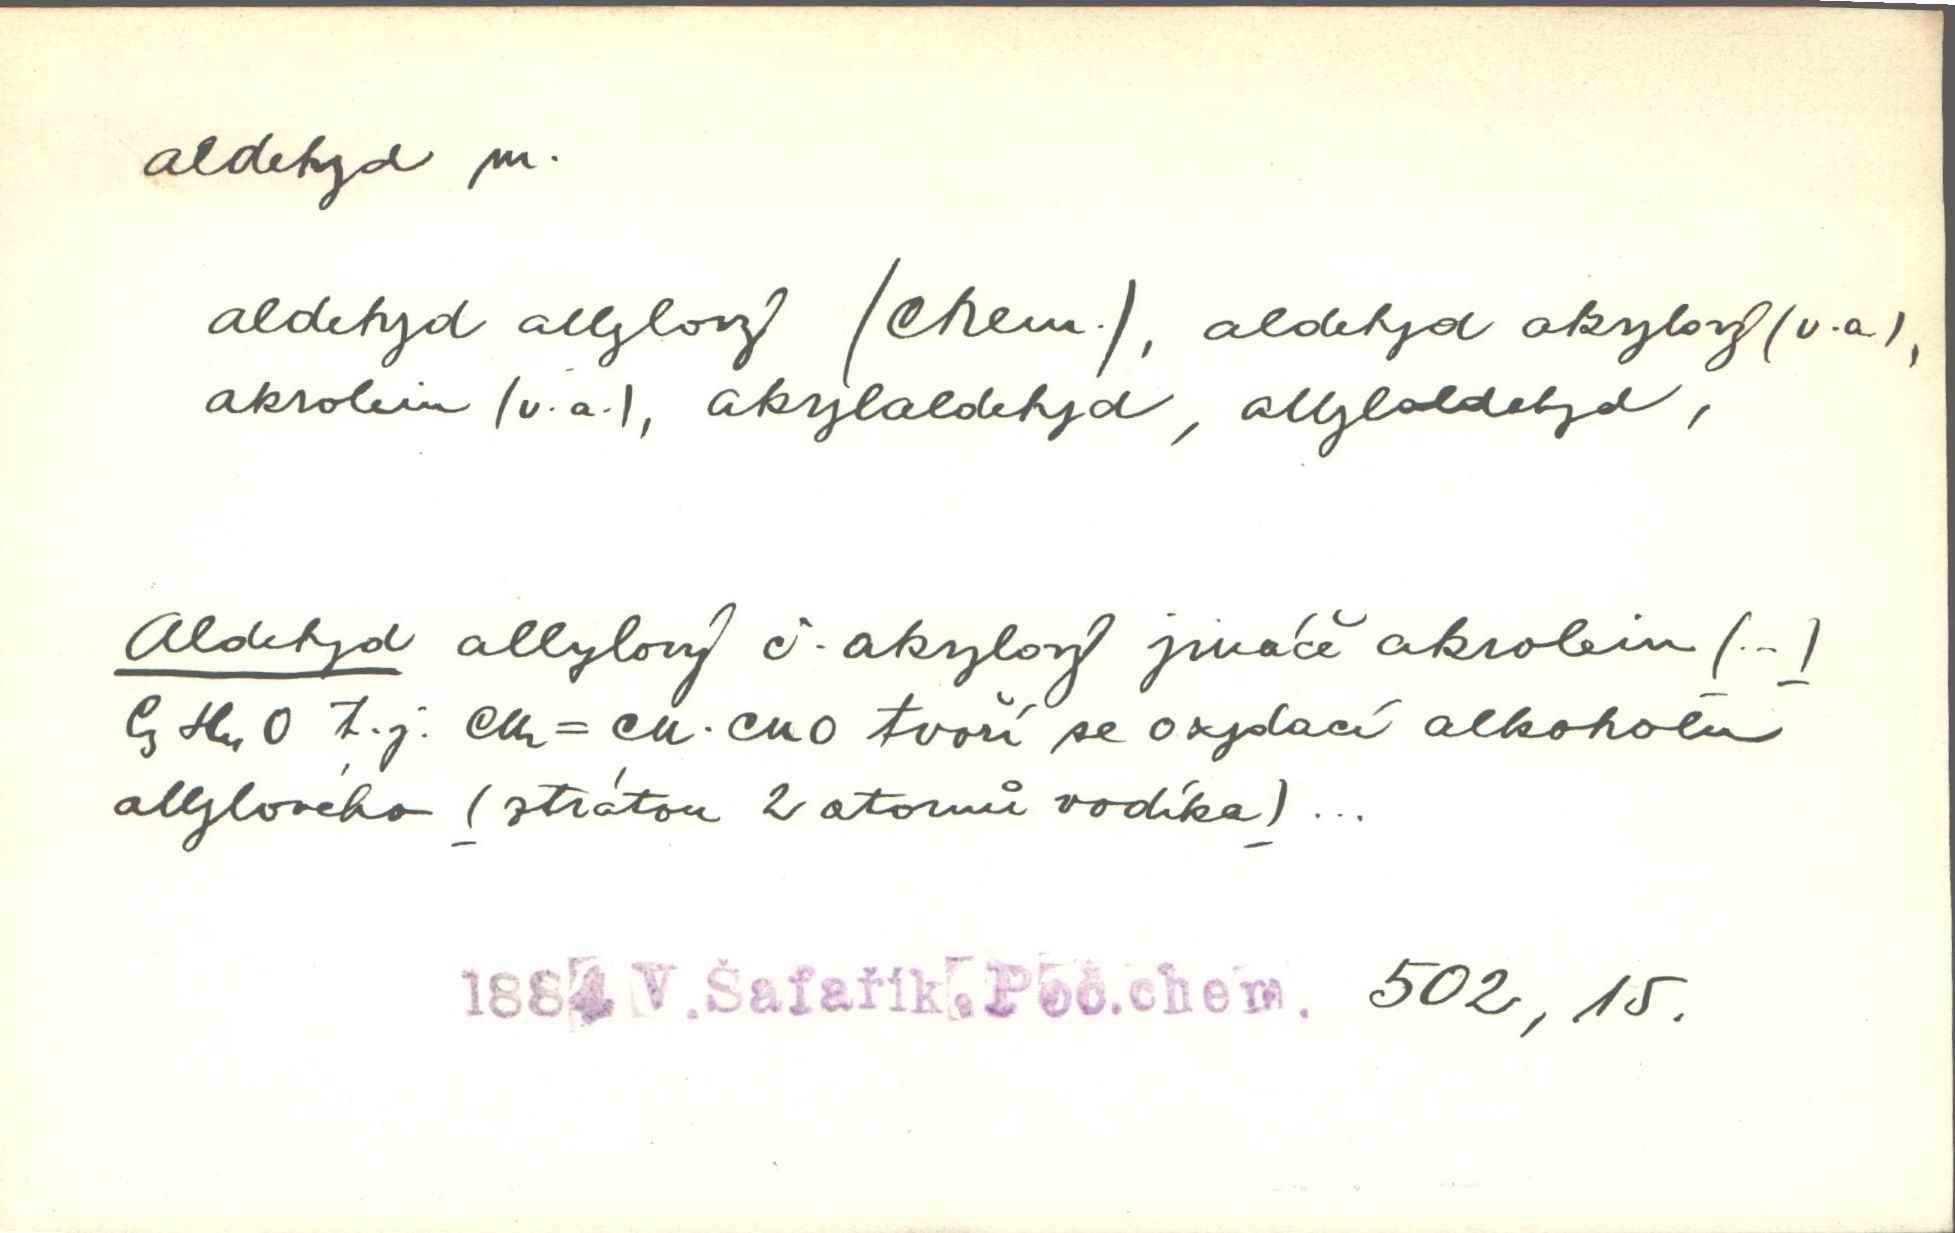 aldehyd m.
aldehyd allylový (chem.), aldehyd akrylový (v.a.),
akrolein (v.a.), akrylaldehyd, allylaldehyd,
Aldehyd allylový č. akrylový jináče akrolein (...)
C₃H₄O t.j. CH₂=CH.CHO tvoří se oxydací alkoholu
allylového (ztrátou 2 atomů vodíka) ...
1884 V.Šafařík.Poč.chem. 502, 15.